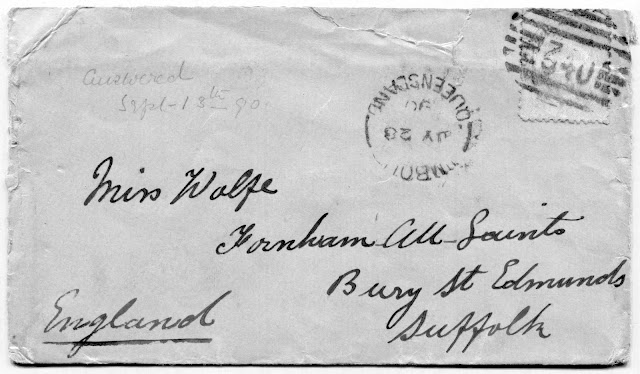 Answered
Sept - 18th 90.
QUEENSLAND
90
28
Miss Wolfe
Fornham All-Saints
Bury St Edmunds
Suffolk
England